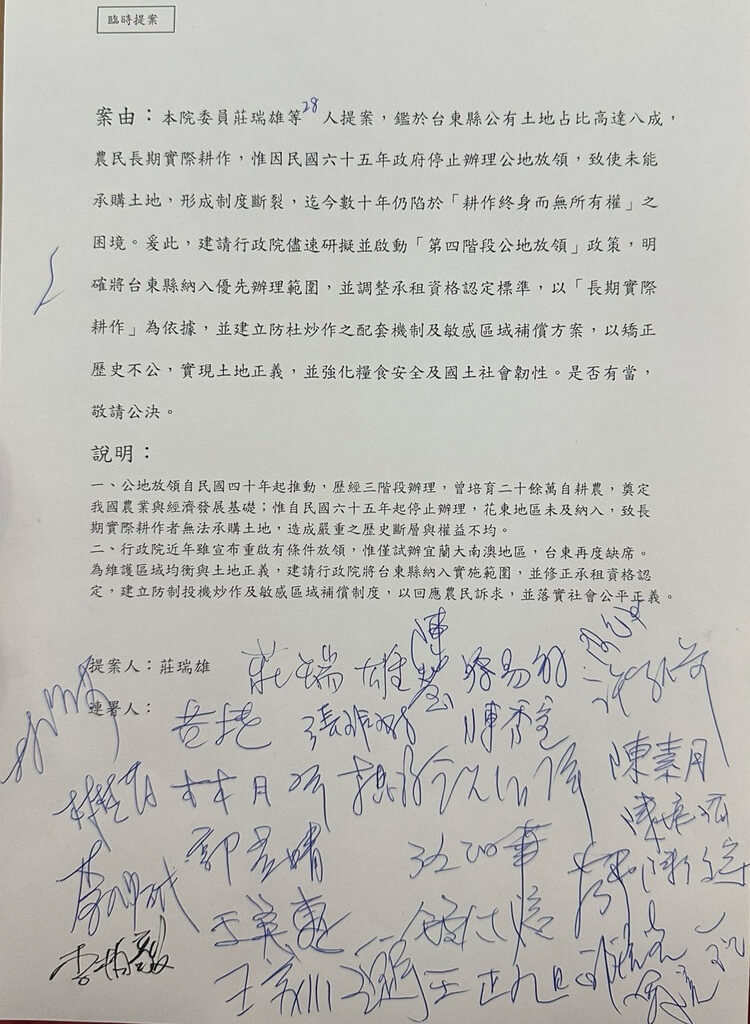 臨時提案
案由：本院委員莊瑞雄等28人提案，鑑於台東縣公有土地占比高達八成，
農民長期實際耕作，惟因民國六十五年政府停止辦理公地放領，致使未能
承購土地，形成制度斷裂，迄今數十年仍陷於「耕作終身而無所有權」之
困境。爰此，建請行政院儘速研擬並啟動「第四階段公地放領」政策，明
確將台東縣納入優先辦理範圍，並調整承租資格認定標準，以「長期實際
耕作」為依據，並建立防杜炒作之配套機制及敏感區域補償方案，以矯正
歷史不公，實現土地正義，並強化糧食安全及國土社會韌性。是否有當，
敬請公決。
說明：
一、公地放領自民國四十年起推動，歷經三階段辦理，曾培育二十餘萬自耕農，奠定
我國農業與經濟發展基礎；惟自民國六十五年起停止辦理，花東地區未及納入，致長
期實際耕作者無法承購土地，造成嚴重之歷史斷層與權益不均。
二、行政院近年雖宣布重啟有條件放領，惟僅試辦宜蘭大南澳地區，台東再度缺席。
為維護區域均衡與土地正義，建請行政院將台東縣納入實施範圍，並修正承租資格認
定，建立防制投機炒作及敏感區域補償制度，以回應農民訴求，並落實社會公平正義。
提案人：莊瑞雄 莊瑞雄
連署人： 黃捷
林月琴
陳素月
郭昱晴
王美惠
李柏毅
王義川 王正旭